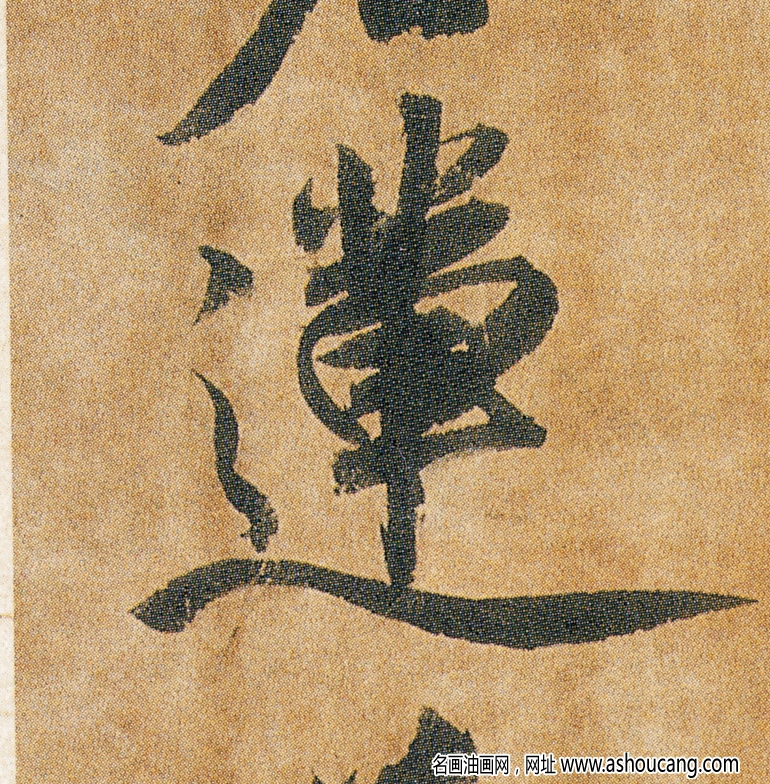 蓮
名画油画网，网址 www.ashoucang.com